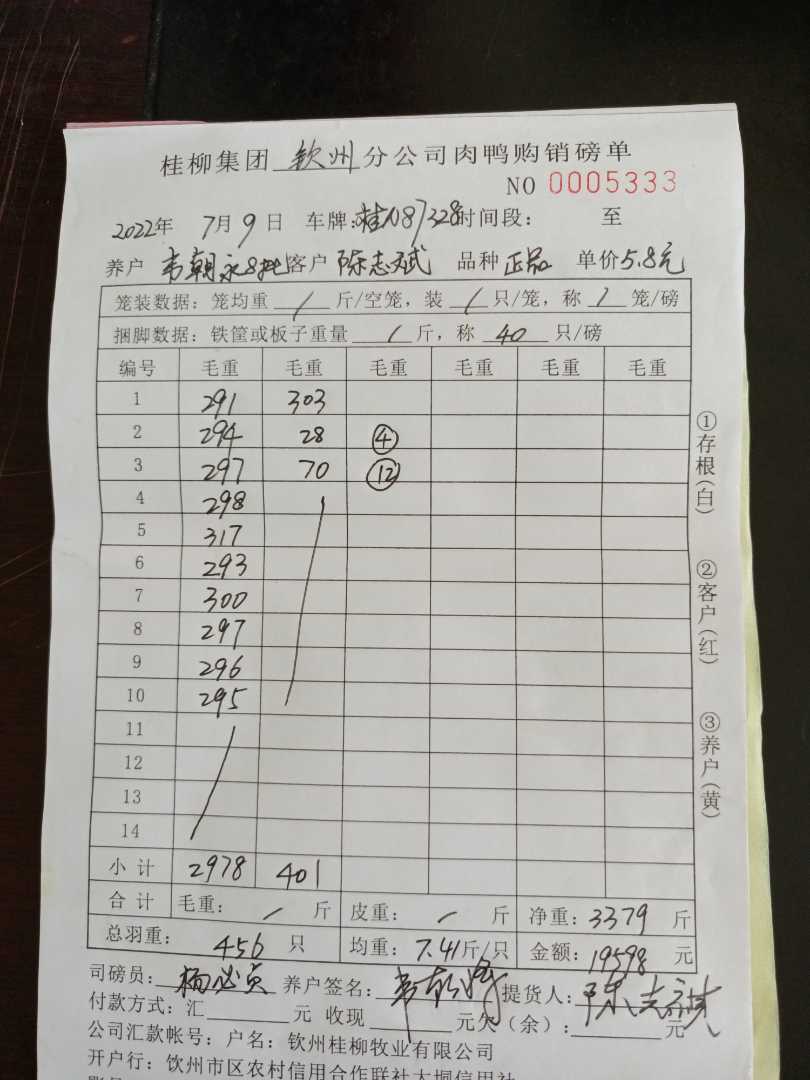 桂柳集团 钦州 分公司肉鸭购销磅单
NO 0005333
2022年 7月9日 车牌:桂N87328 时间段: 至
养户 韦朝永8批 客户 陈志斌 品种 正品 单价5.8元
笼装数据: 笼均重 / 斤/空笼, 装 / 只/笼, 称 / 笼/磅
捆脚数据: 铁筐或板子重量 / 斤, 称 40 只/磅
编号 毛重 毛重 毛重 毛重 毛重 毛重
1 291 303
2 294 28 ④
3 297 70 ⑫
4 298
5 317
6 293
7 300
8 297
9 296
10 295
11
12
13
14
小计 2978 401
合计 毛重: / 斤 皮重: / 斤 净重: 3379 斤
总羽重: 456 只 均重: 7.41斤/只 金额: 19598 元
①存根(白)
②客户(红)
③养户(黄)
司磅员: 养户签名: 提货人:
付款方式: 汇 元 收现 元欠(余): 元
公司汇款帐号: 户名: 钦州桂柳牧业有限公司
开户行: 钦州市区农村信用合作联社大垌信用社